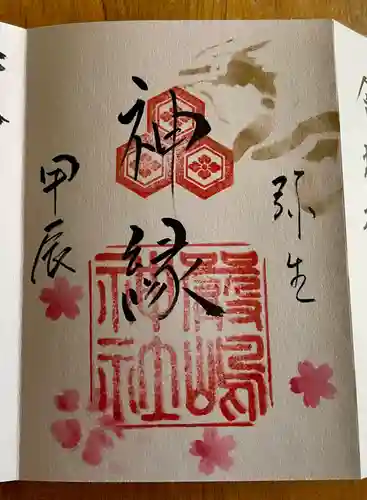 弥生
神縁
嚴嶋
神社
甲辰